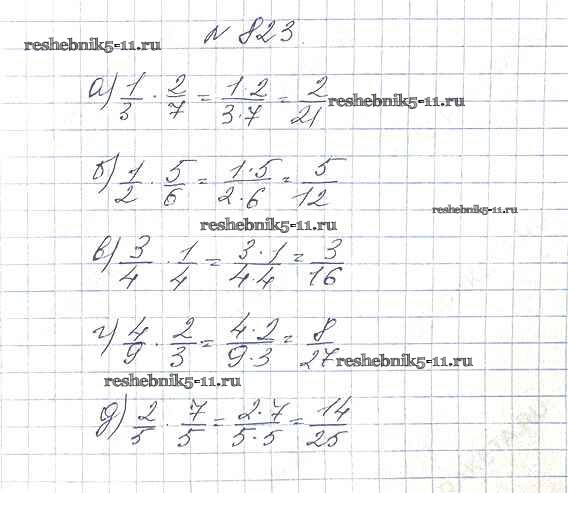 № 823.
reshebnik5-11.ru
а) 1/3 · 2/7 = 1·2/3·7 = 2/21
reshebnik5-11.ru
б) 1/2 · 5/6 = 1·5/2·6 = 5/12
reshebnik5-11.ru
reshebnik5-11.ru
в) 3/4 · 1/4 = 3·1/4·4 = 3/16
г) 4/9 · 2/3 = 4·2/9·3 = 8/27
reshebnik5-11.ru
reshebnik5-11.ru
д) 2/5 · 7/5 = 2·7/5·5 = 14/25